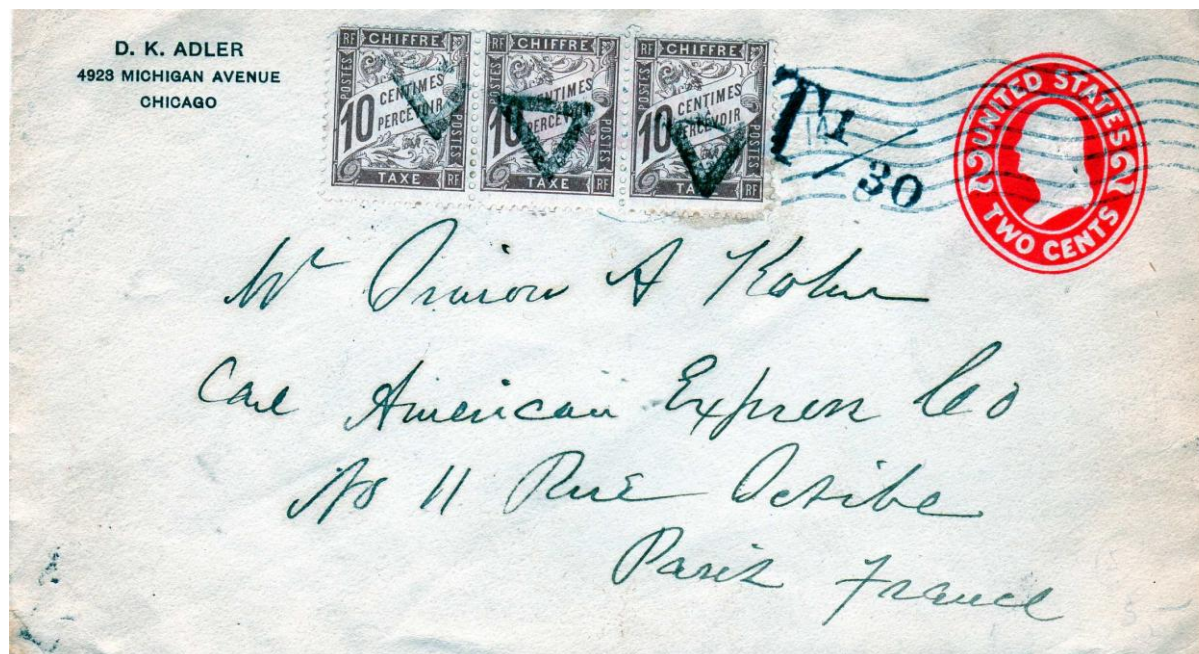 D. K. ADLER
4928 MICHIGAN AVENUE
CHICAGO
RF CHIFFRE
POSTES
10 CENTIMES
PERCEVOIR
POSTES
TAXE RF
RF CHIFFRE
10 CENTIMES
PERCEVOIR
POSTES
TAXE RF
RF CHIFFRE
POSTES
10 CENTIMES
PERCEVOIR
POSTES
TAXE RF
T 1/30
UNITED STATES
2 2
TWO CENTS
Mr A Kohn
Care American Express Co
No 11 Rue
Paris France